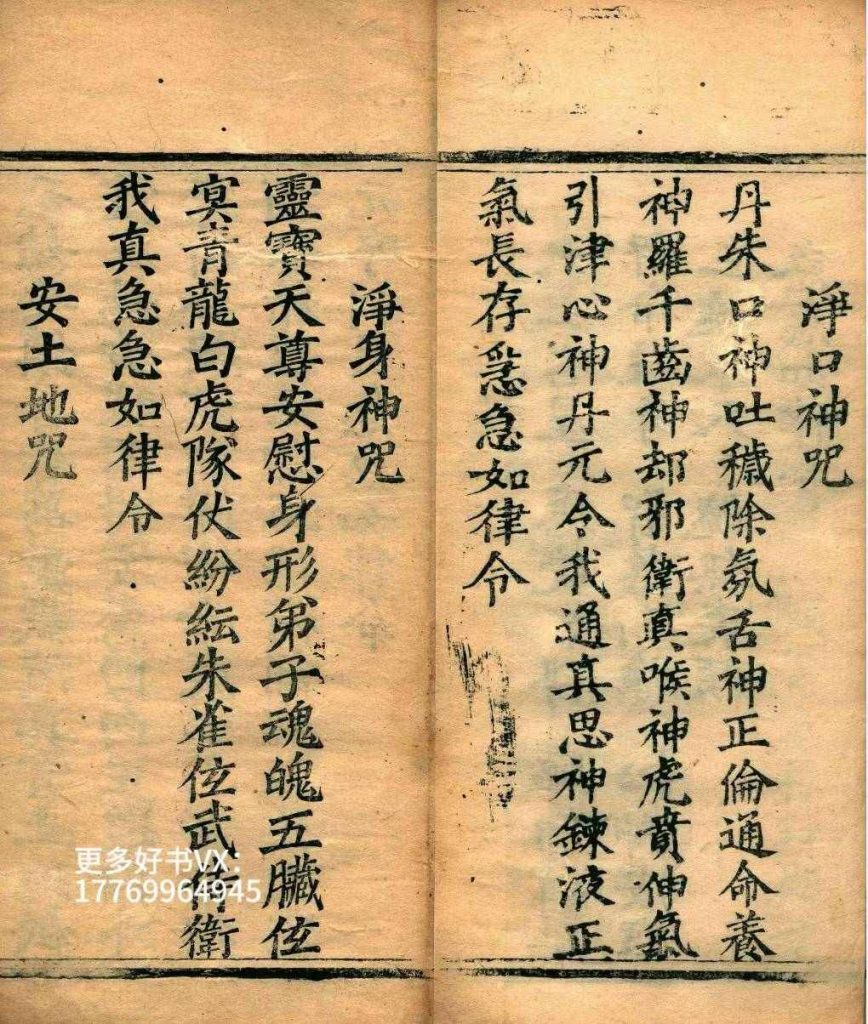 淨口神咒
丹朱口神吐穢除氛舌神正倫通命養
神羅千齒神却邪衛真喉神虎賁伸氣
引津心神丹元令我通真思神鍊液正
氣長存急急如律令
淨身神咒
靈寶天尊安慰身形弟子魂魄五臟位
寞青龍白虎隊仗紛紜朱雀位武侍衛
我真急急如律令
安土地咒
更多好书VX:
17769964945